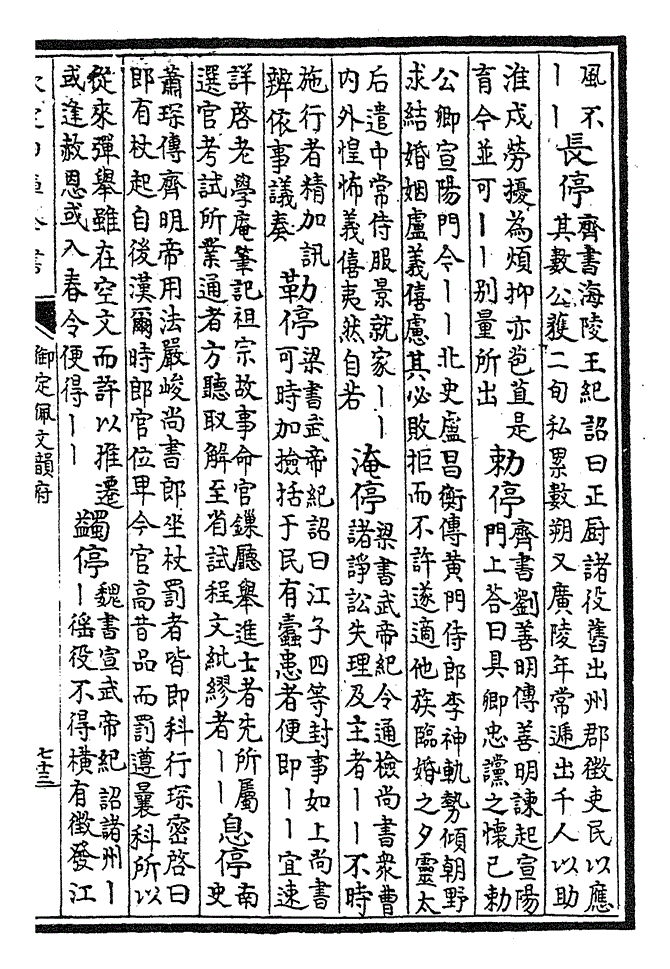 風不
丨丨
長停
齊書海陵王紀詔曰正厨諸役舊出州郡徵吏民以應
其數公獲二旬私累數朔又廣陵年常遞出千人以助
淮戍勞擾為煩抑亦苞苴是
育今並可丨丨别量所出
勅停
齊書劉善明傳善明諫起宣陽
門上荅曰具卿忠讜之懷已勅
公卿宣陽門今丨丨北史盧昌衡傳黄門侍郎李神軌勢傾朝野
求結婚姻盧義僖慮其必敗拒而不許遂適他族臨婚之夕靈太
后遣中常侍服景就家丨丨
内外惶怖義僖夷然自若
淹停
梁書武帝紀令通檢尚書衆曹
諸諍訟失理及主者丨丨不時
施行者精加訊
辨依事議奏
勒停
梁書武帝紀詔曰江子四等封事如上尚書
可時加檢括于民有蠧患者便即丨丨宜速
詳啓老學庵筆記祖宗故事命官鏁廳舉進士者先所屬
選官考試所業通者方聽取解至省試程文紕繆者丨丨
息停
南
史
蕭琛傳齊明帝用法嚴峻尚書郎坐杖罰者皆即科行琛密啓曰
郎有杖起自後漢爾時郎官位卑今官高昔品而罰遵曩科所以
從來彈舉雖在空文而許以推遷
或逢赦恩或入春令便得丨丨
蠲停
魏書宣武帝紀詔諸州丨
丨徭役不得横有徵發江
御定佩文韻府
七十三